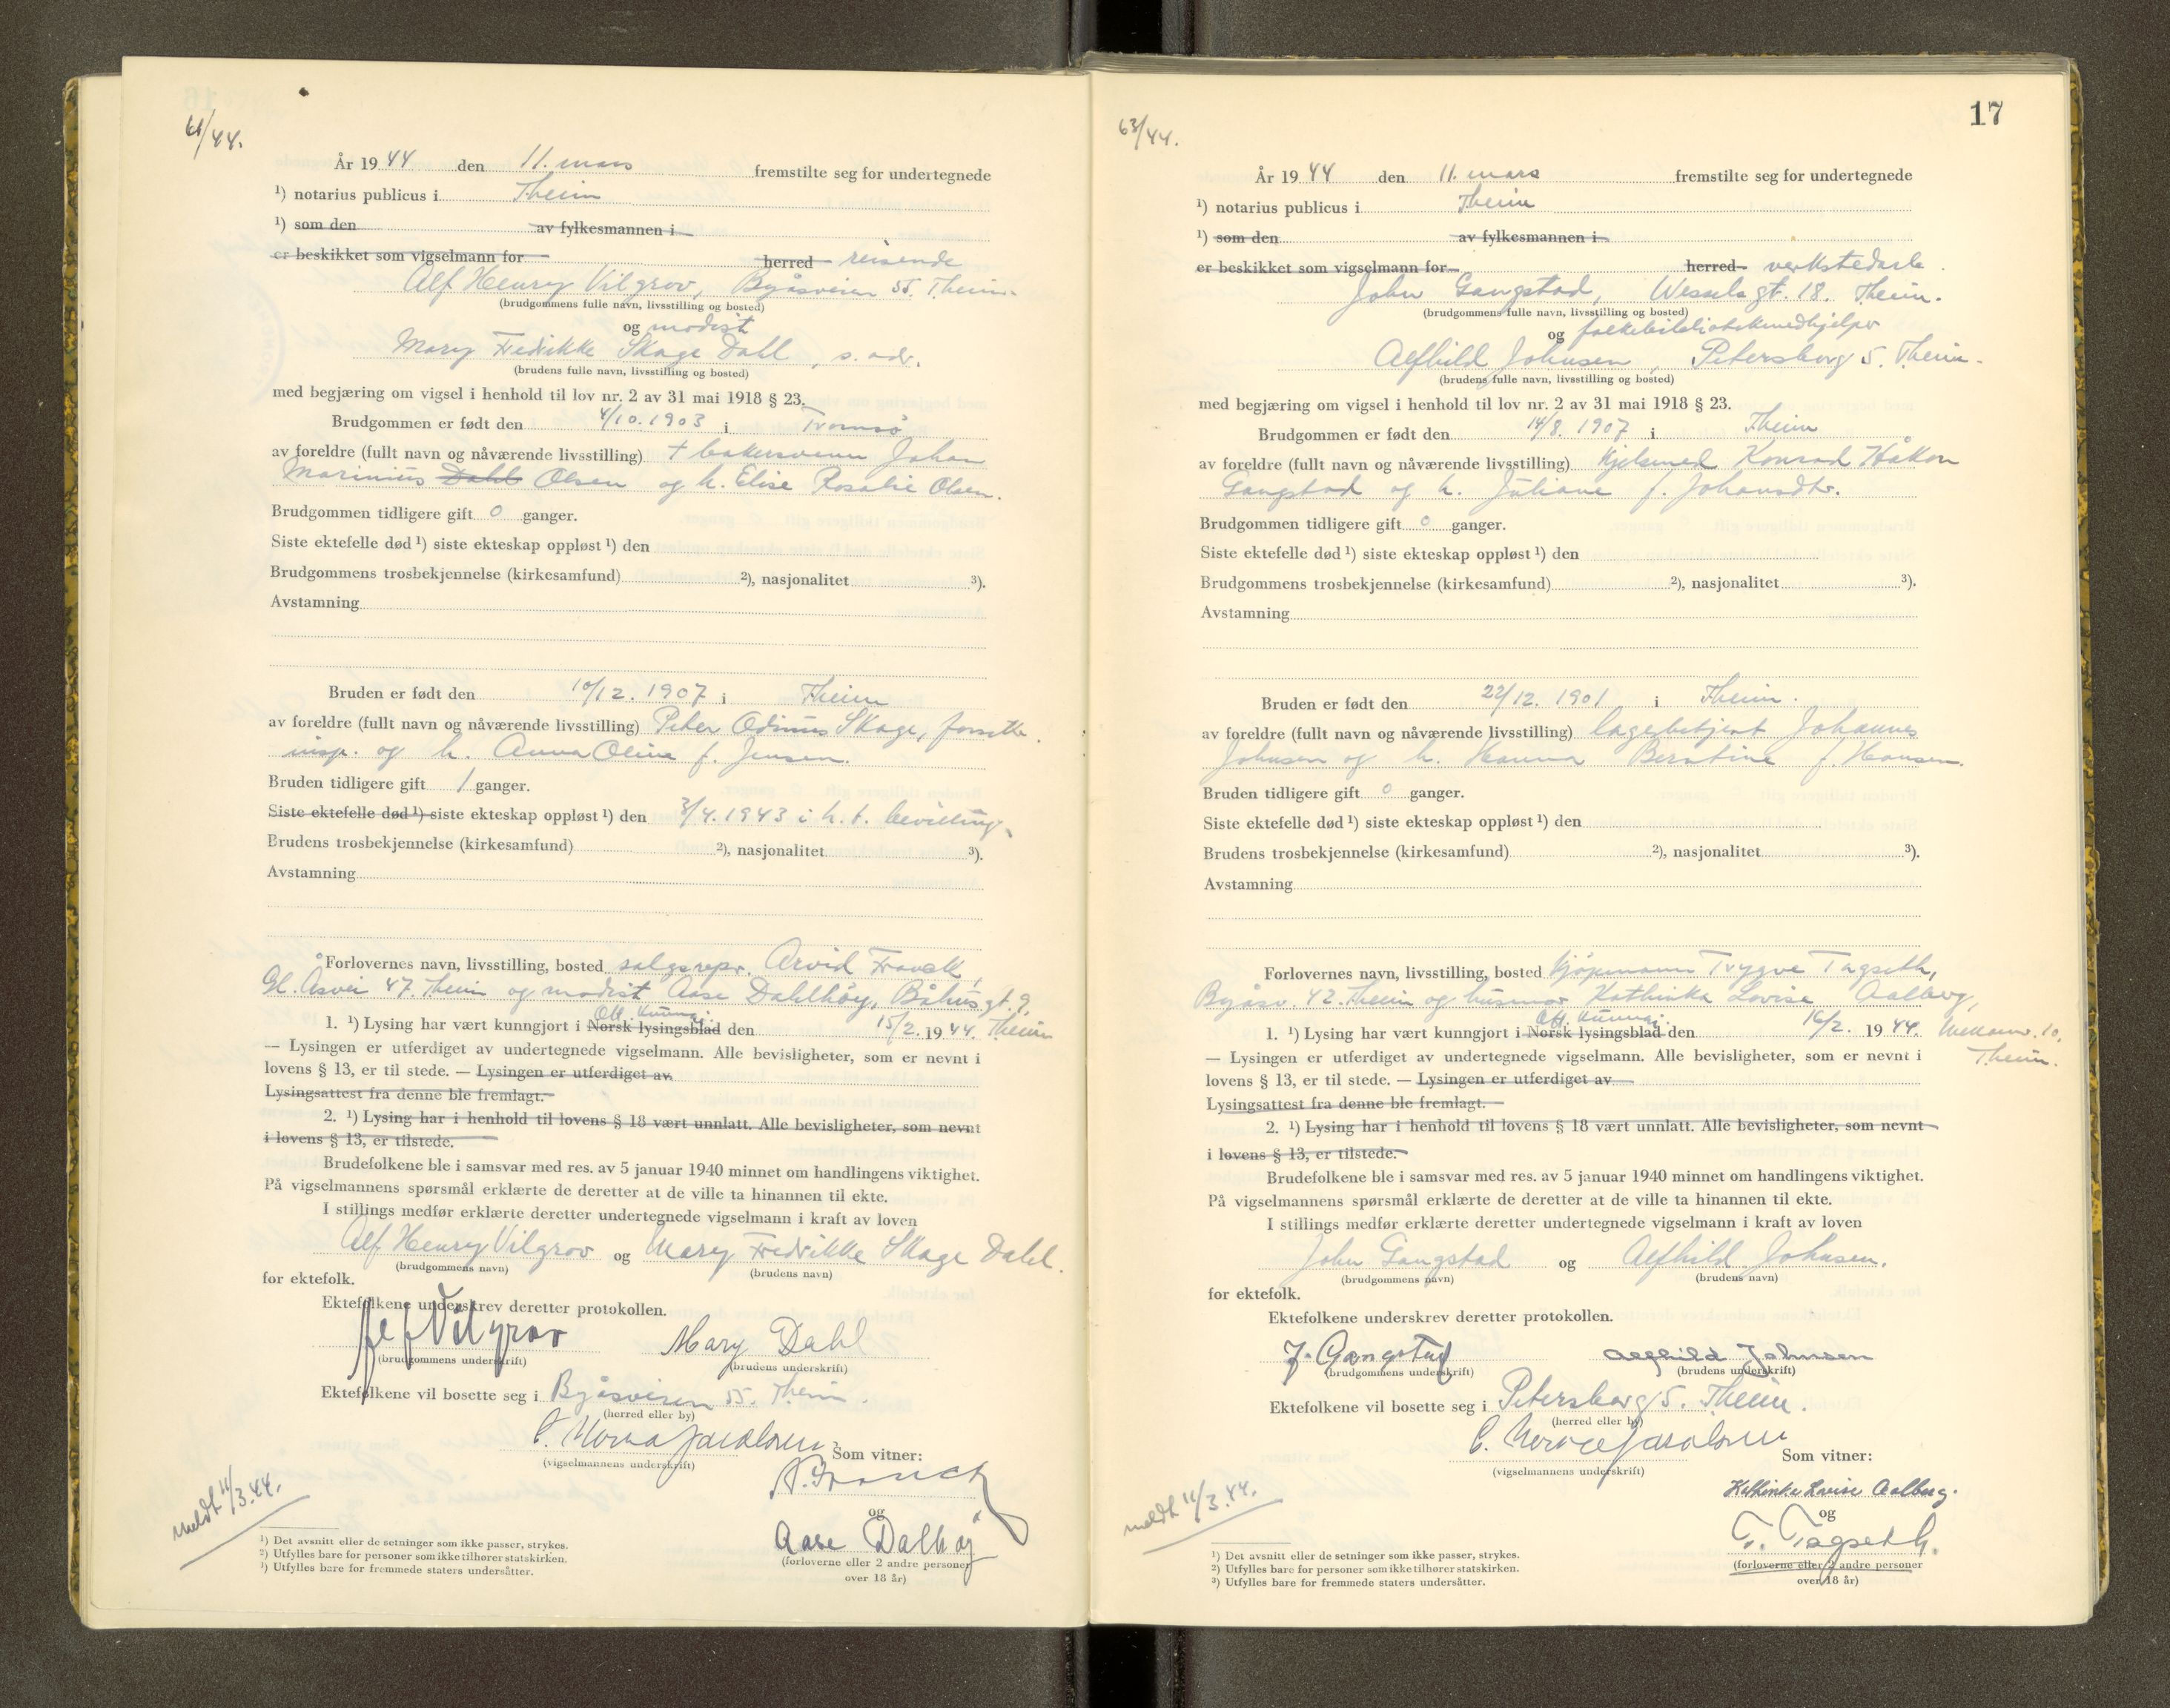 61/44.
År 19 44 den 11. mars fremstilte seg for undertegnede
¹) notarius publicus i Theim
¹) som den av fylkesmannen i
er beskikket som vigselmann for herred reisende
Alf Henry Vilgrov, Byåsveien 55. Theim.
(brudgommens fulle navn, livsstilling og bosted)
og modist
Mary Fredrikke Skage Dahl, s. adr.
(brudens fulle navn, livsstilling og bosted)
med begjæring om vigsel i henhold til lov nr. 2 av 31 mai 1918 § 23.
Brudgommen er født den 4/10. 1903 i Tromsø
av foreldre (fullt navn og nåværende livsstilling) + bakersvenn Johan
Marinius Dahl Olsen og h. Elise Rosalie Olsen.
Brudgommen tidligere gift 0 ganger.
Siste ektefelle død ¹) siste ekteskap oppløst ¹) den
Brudgommens trosbekjennelse (kirkesamfund) ²), nasjonalitet ³).
Avstamning
Bruden er født den 10/12. 1907 i Theim
av foreldre (fullt navn og nåværende livsstilling) Peter Odinius Skage,
insp. og h. Anna Oline f. Jensen.
Bruden tidligere gift 1 ganger.
Siste ektefelle død ¹) siste ekteskap oppløst ¹) den 3/4. 1943 i h. t. bevilling.
Brudens trosbekjennelse (kirkesamfund) ²), nasjonalitet ³).
Avstamning
Forlovernes navn, livsstilling, bosted salgsrepr. Arvid Franck,
Gl. Åsvei 47. Theim og modist Aase Dahlhöy, Båhus gt. 9.
Off. kunngj.
1. ¹) Lysing har vært kunngjort i Norsk lysingsblad den 15/2. 19 44. Theim
— Lysingen er utferdiget av undertegnede vigselmann. Alle bevisligheter, som er nevnt i
lovens § 13, er til stede. — Lysingen er utferdiget av
Lysingsattest fra denne ble fremlagt.
2. ¹) Lysing har i henhold til lovens § 18 vært unnlatt. Alle bevisligheter, som nevnt
i lovens § 13, er tilstede.
Brudefolkene ble i samsvar med res. av 5 januar 1940 minnet om handlingens viktighet.
På vigselmannens spørsmål erklærte de deretter at de ville ta hinannen til ekte.
I stillings medfør erklærte deretter undertegnede vigselmann i kraft av loven
Alf Henry Vilgrov og Mary Fredrikke Skage Dahl.
(brudgommens navn) (brudens navn)
for ektefolk.
Ektefolkene underskrev deretter protokollen.
Alf Vilgrov Mary Dahl
(brudgommens underskrift) (brudens underskrift)
Ektefolkene vil bosette seg i Byåsveien 55. Theim.
(herred eller by)
Jacobsen
(vigselmannens underskrift) Som vitner:
A. Franck
og
Aase Dalhøj
(forloverne eller 2 andre personer
over 18 år)
meldt 11/3.44.
¹) Det avsnitt eller de setninger som ikke passer, strykes.
²) Utfylles bare for personer som ikke tilhører statskirken.
³) Utfylles bare for fremmede staters undersåtter.
17
63/44.
År 19 44 den 11. mars fremstilte seg for undertegnede
¹) notarius publicus i Theim
¹) som den av fylkesmannen i
er beskikket som vigselmann for herred verkstedarb.
John Gangstad, Wessels gt. 18. Theim.
(brudgommens fulle navn, livsstilling og bosted)
og folkebibliotekmedhjelper
Alfhild Johnsen, Petersborg 5. Theim.
(brudens fulle navn, livsstilling og bosted)
med begjæring om vigsel i henhold til lov nr. 2 av 31 mai 1918 § 23.
Brudgommen er født den 14/8. 1907 i Theim
av foreldre (fullt navn og nåværende livsstilling) kjelsmed Konrad Håkon
Gangstad og h. Juliane f. Johansdtr.
Brudgommen tidligere gift 0 ganger.
Siste ektefelle død ¹) siste ekteskap oppløst ¹) den
Brudgommens trosbekjennelse (kirkesamfund) ²), nasjonalitet ³).
Avstamning
Bruden er født den 22/12. 1901 i Theim.
av foreldre (fullt navn og nåværende livsstilling) lagerbetjent Johannes
Johnsen og h. Hanna Berntine f. Hansen.
Bruden tidligere gift 0 ganger.
Siste ektefelle død ¹) siste ekteskap oppløst ¹) den
Brudens trosbekjennelse (kirkesamfund) ²), nasjonalitet ³).
Avstamning
Forlovernes navn, livsstilling, bosted kjøpmann Trygve Tagseth,
Byåsv. 42. Theim og husmor Kathinka Lovise Aalberg,
Off. kunngj.
1. ¹) Lysing har vært kunngjort i Norsk lysingsblad den 16/2. 19 44. Mellomv. 10.
— Lysingen er utferdiget av undertegnede vigselmann. Alle bevisligheter, som er nevnt i Theim.
lovens § 13, er til stede. — Lysingen er utferdiget av
Lysingsattest fra denne ble fremlagt.
2. ¹) Lysing har i henhold til lovens § 18 vært unnlatt. Alle bevisligheter, som nevnt
i lovens § 13, er tilstede.
Brudefolkene ble i samsvar med res. av 5 januar 1940 minnet om handlingens viktighet.
På vigselmannens spørsmål erklærte de deretter at de ville ta hinannen til ekte.
I stillings medfør erklærte deretter undertegnede vigselmann i kraft av loven
John Gangstad og Alfhild Johnsen.
(brudgommens navn) (brudens navn)
for ektefolk.
Ektefolkene underskrev deretter protokollen.
J. Gangstad Alfhild Johnsen
(brudgommens underskrift) (brudens underskrift)
Ektefolkene vil bosette seg i Petersborg 5. Theim.
(herred eller by)
Jacobsen
(vigselmannens underskrift) Som vitner:
Kathinka Lovise Aalberg.
og
T. Tagseth.
(forloverne eller 2 andre personer
over 18 år)
meldt 11/3.44.
¹) Det avsnitt eller de setninger som ikke passer, strykes.
²) Utfylles bare for personer som ikke tilhører statskirken.
³) Utfylles bare for fremmede staters undersåtter.